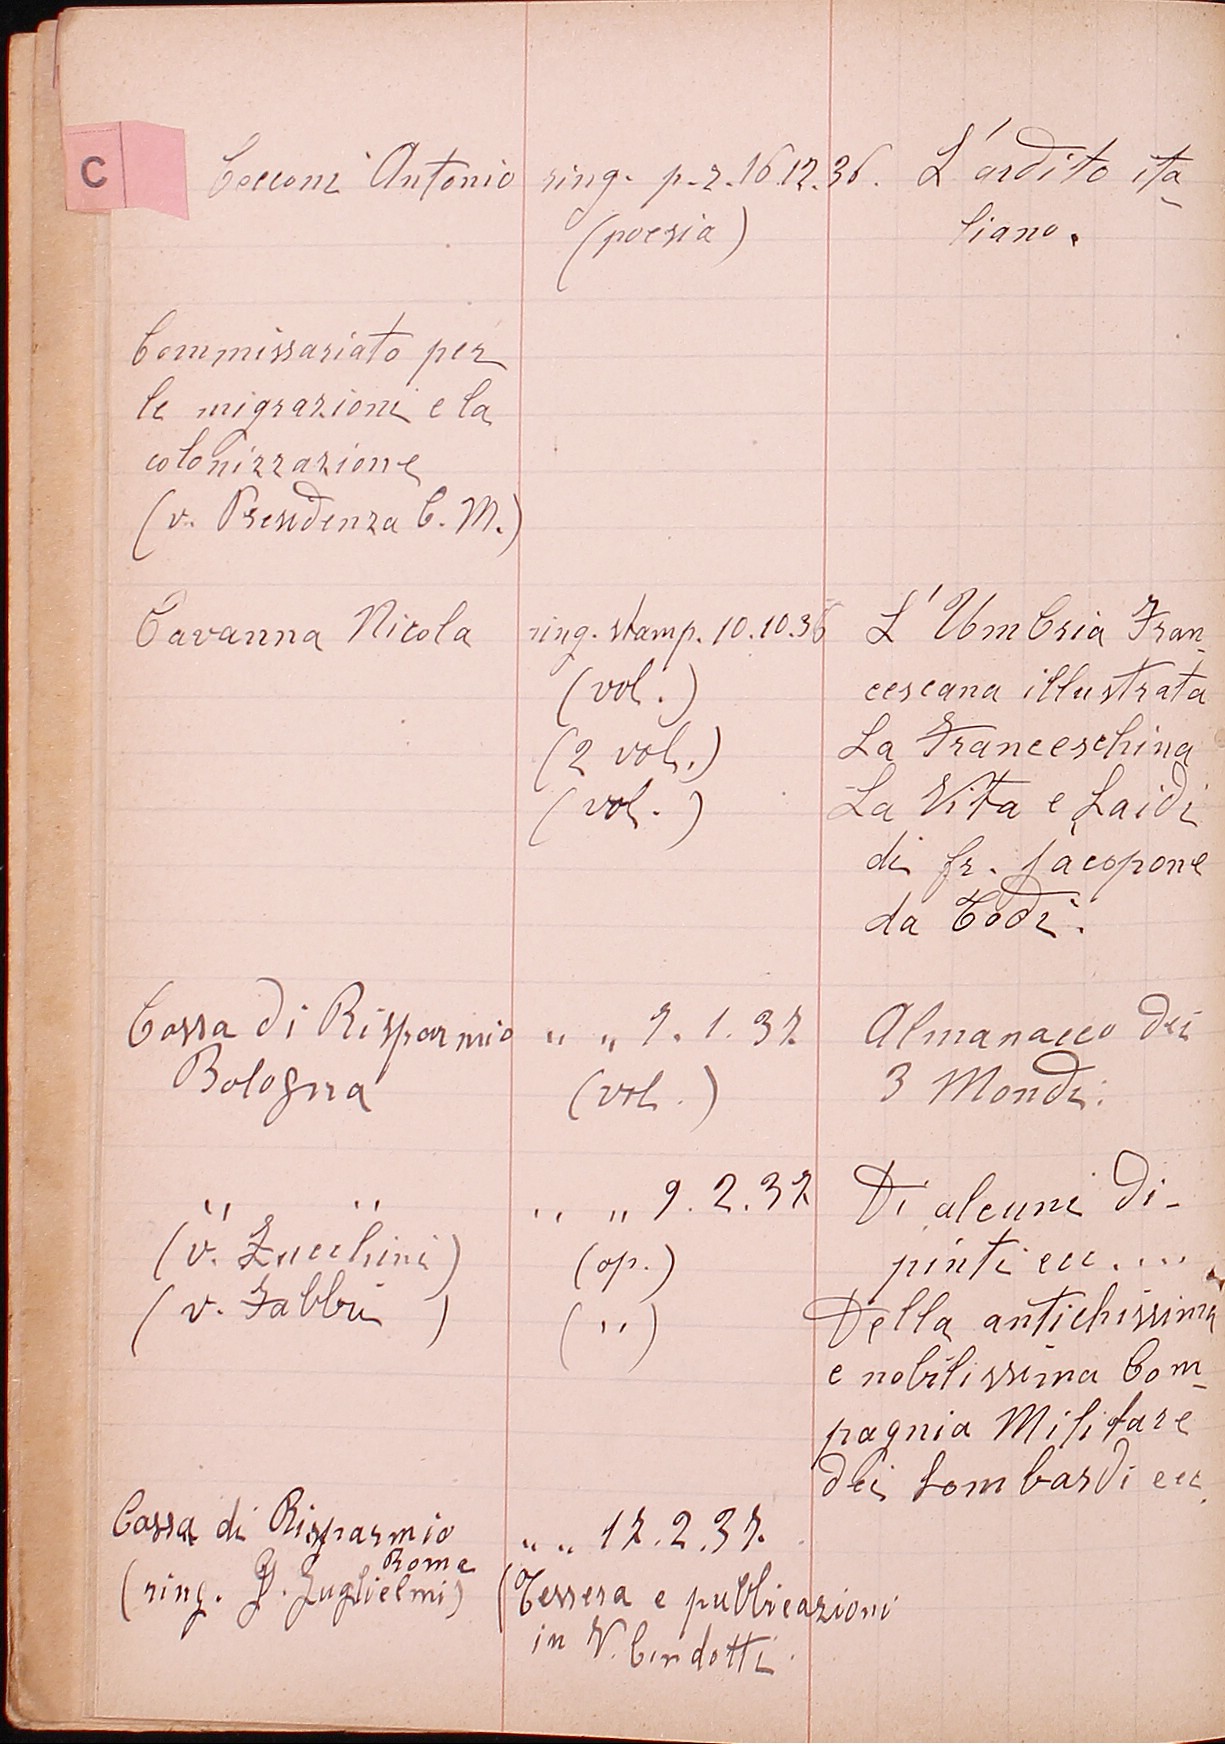 C
Cecconi Antonio ring. p.r. 16.12.36. L'ardito ita-
(poesia) liano.
Commissariato per
le migrazioni e la
colonizzazione
(v. Presidenza C. M.)
Cavanna Nicola ring. stamp. 10.10.36 L'Umbria Fran-
(vol.) cescana illustrata
(2 vol.) La Franceschina
(vol.) La Vita e Laidi
di fr. Jacopone
da Todi.
Cassa di Risparmio " " 7.1.37 Almanacco dei
Bologna (vol.) 3 Mondi.
" " " " 9.2.37 Di alcuni di-
(v. Zucchini) (op.) pinti ecc....
(v. Fabbri) (") Della antichissima
e nobilissima Com-
pagnia Militare
dei Lombardi ecc.
Cassa di Risparmio " " 17.2.37.
Roma
(ring. G. Guglielmi) (Tessera e pubblicazioni
in V.